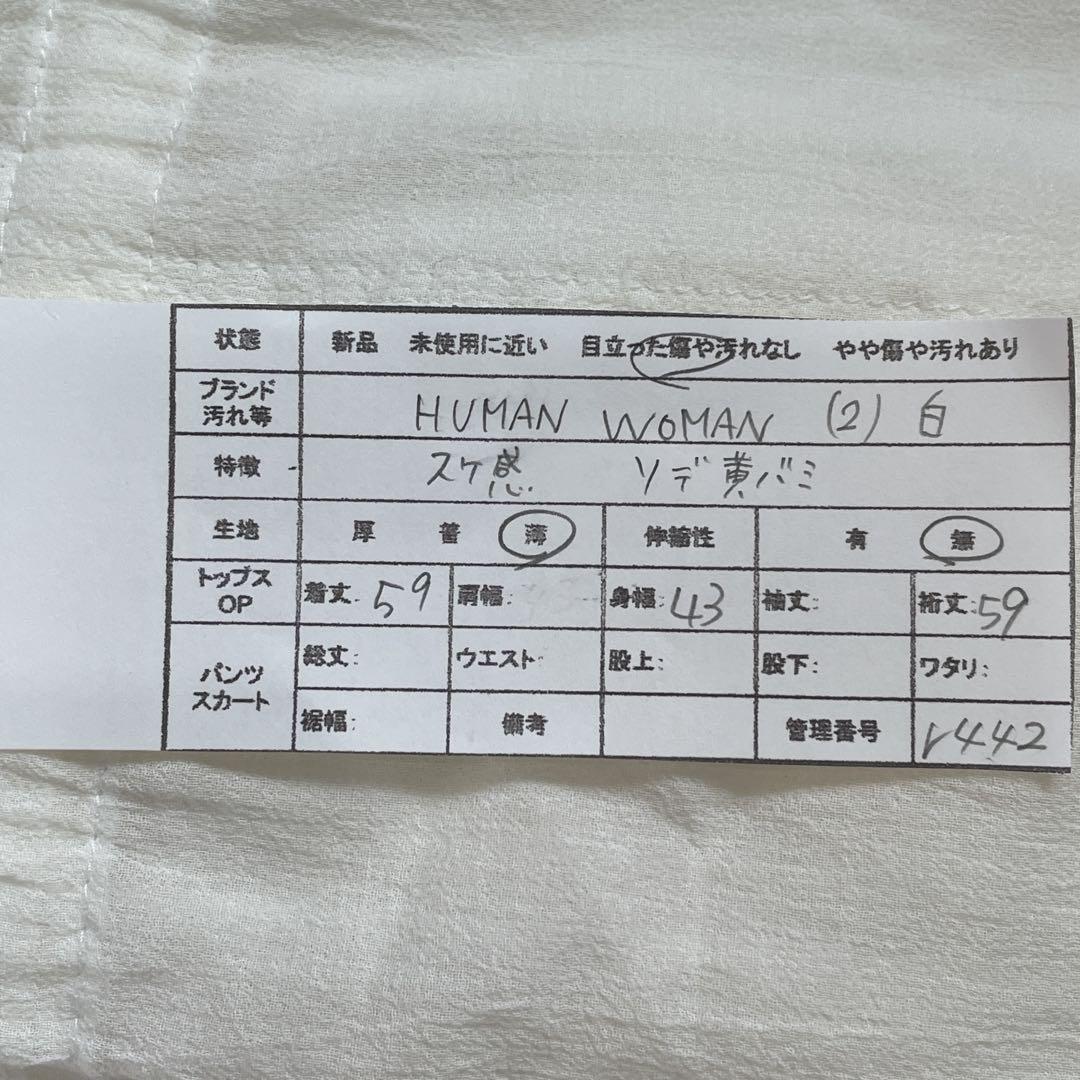 状態 新品 未使用に近い 目立った傷や汚れなし やや傷や汚れあり
ブランド
汚れ等 HUMAN WOMAN (2) 白
特徴 スケ感 ソデ黄バミ
生地 厚 普 薄 伸縮性 有 無
トップス
OP 着丈: 59 肩幅: 身幅: 43 袖丈: 裄丈: 59
パンツ
スカート 総丈: ウエスト: 股上: 股下: ワタリ:
裾幅: 備考 管理番号 r442